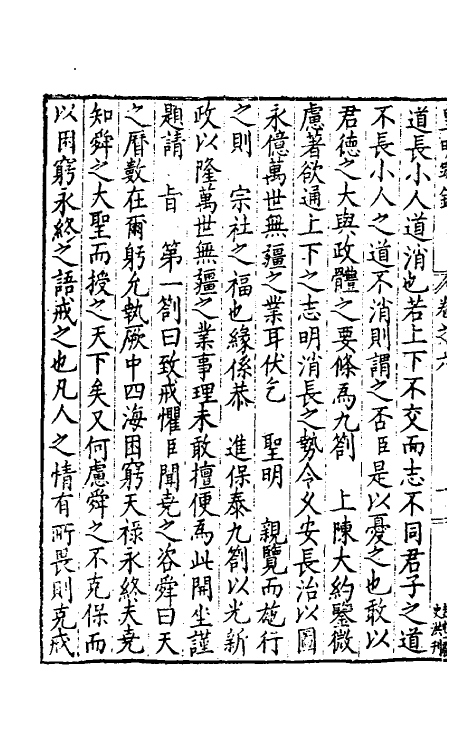 皇明疏鈔
卷之六
道長小人道消也若上下不交而志不同君子之道
不長小人之道不消則謂之否臣是以憂之也敢以
君德之大與政體之要條爲九劄　上陳大約鑒微
慮著欲通上下之志明消長之勢令乂安長治以圖
永億萬世無疆之業耳伏乞　聖明　親覽而施行
之則　宗社之福也緣係恭　進保泰九劄以光新
政以隆萬世無疆之業事理未敢擅便爲此開坐謹
題請　旨　第一劄曰致戒懼臣聞堯之咨舜曰天
之曆數在爾躬允執厥中四海困窮天祿永終夫堯
知舜之大聖而授之天下矣又何慮舜之不克保而
以困窮永終之語戒之也凡人之情有所畏則克戒